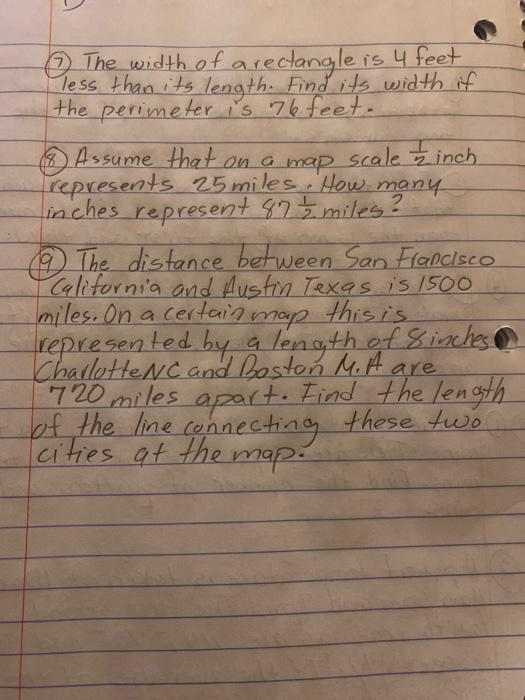 ⑦ The width of a rectangle is 4 feet
less than its length. Find its width if
the perimeter is 76 feet.
⑧ Assume that on a map scale 1/2 inch
represents 25 miles. How many
inches represent 87 1/2 miles?
⑨ The distance between San Francisco
California and Austin Texas is 1500
miles. On a certain map this is
represented by a length of 8 inches
Charlotte NC and Boston M.A are
720 miles apart. Find the length
of the line connecting these two
cities at the map.